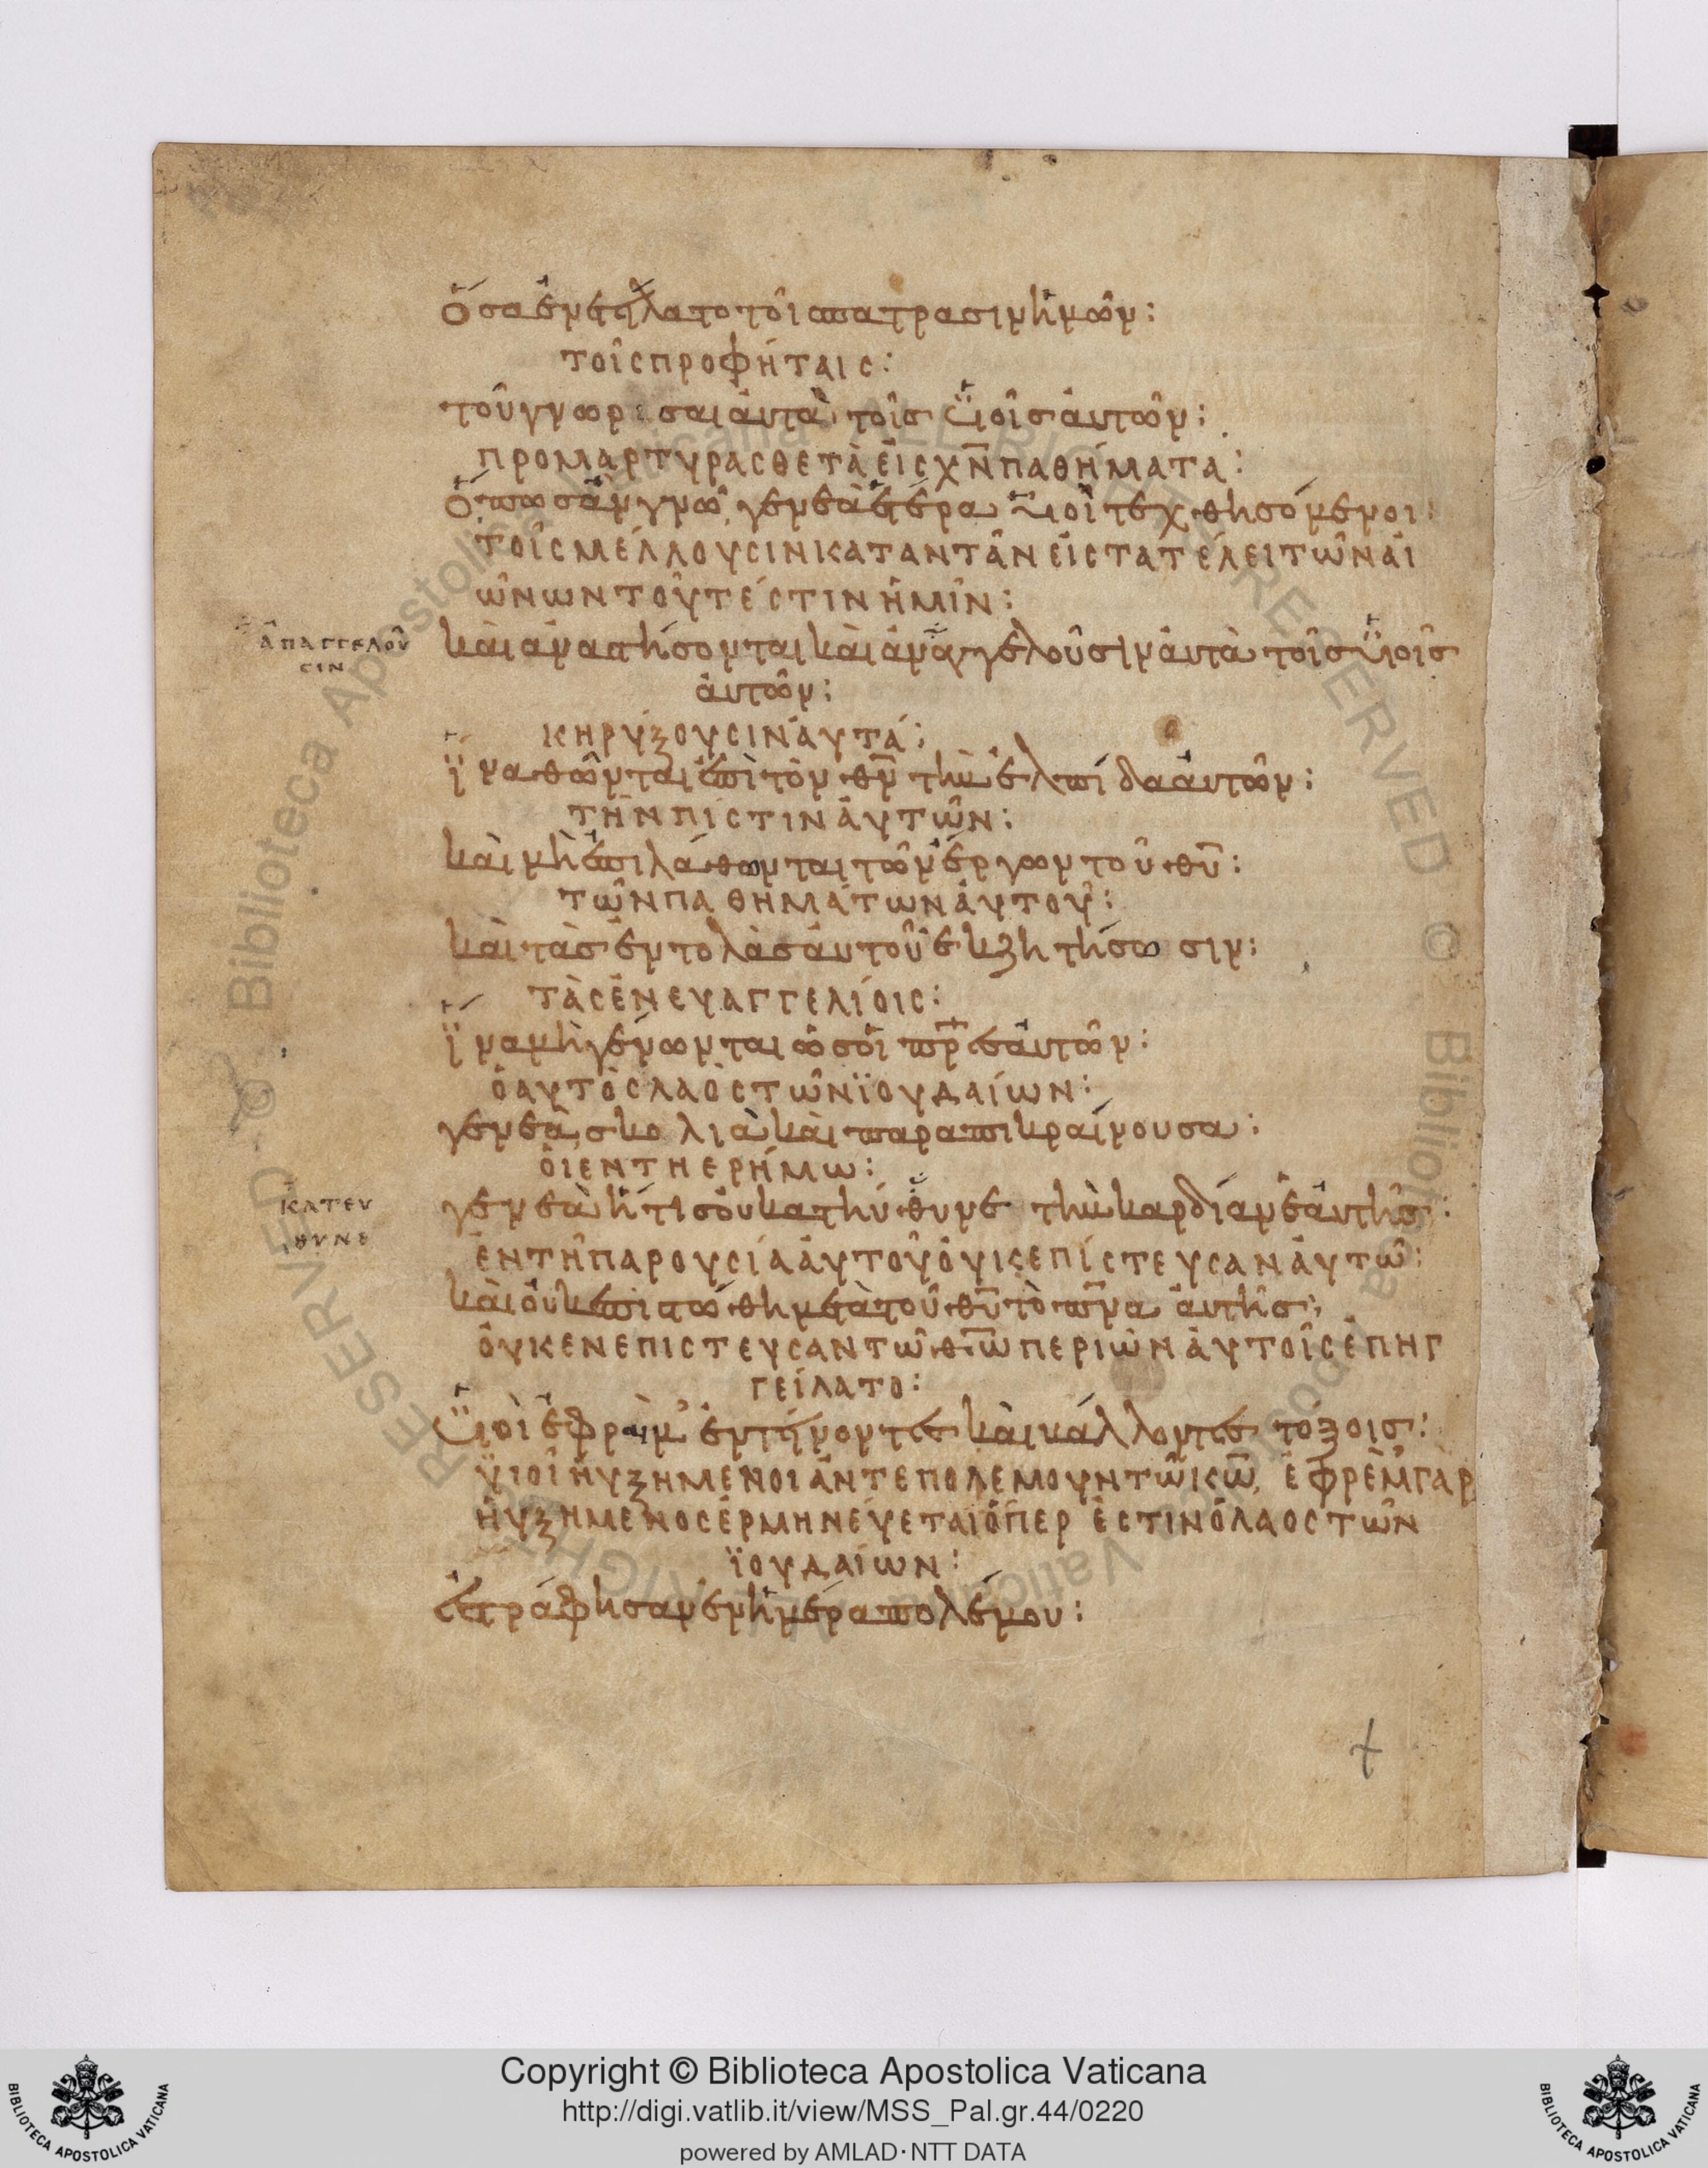 ὅσα ἐνετείλατο τοῖς πατράσιν ἡμῶν:
ΤΟῖC ΠΡΟΦΉΤΑΙC:
τοῦ γνωρίσαι ἀυτὰ τοῖς ὑϊοῖς ἀυτῶν:
ΠΡΟΜΑΡΤΥΡΑCΘΕ ΤᾺ ἘΙC Χ̅Ν̅ ΠΑΘΉΜΑΤΑ:
ὅπως ἂν γνῶ γενεὰ ἑτέρα ὑιοὶ τεχθησόμενοι:
ΤΟῖC ΜΈΛΛΟΥCΙΝ ΚΑΤΑΝΤᾶΝ ἘΙC ΤΑ ΤΈΛΕΙ ΤῶΝ ἈΙ
ΏΝΩΝ ΤΟΥΤΈCΤΙΝ ἩΜῖΝ:
ἈΠΑΓΓΕΛΟῦ
CΙΝ
καὶ ἀναστήσονται καὶ ἀναγγελοῦσιν ἀυτὰ τοῖς ὑϊοῖς
ἀυτῶν:
ΚΗΡΎΞΟΥCΙΝ ἈΥΤΆ:
ἵνα θῶνται ἐπὶ τὸν θ̅ν̅ τὴν ἐλπίδα ἀυτῶν:
ΤῊΝ ΠΊCΤΙΝ ἈΥΤῶΝ:
καὶ μὴ ἐπιλάθωνται τῶν ἔργων τοῦ θ̅υ̅:
ΤῶΝ ΠΑΘΗΜΆΤΩΝ ἈΥΤΟῦ:
καὶ τὰς ἐντολὰς ἀυτοῦ ἐκζητήσωσιν:
ΤᾺC ἘΝ ΕΥΑΓΓΕΛΊΟΙC:
ἵνα μὴ γένωνται ὡς ὁι π̅ρ̅ες ἀυτῶν:
ὉΑΥΤῸC ΛΑῸC ΤῶΝ ΪΟΥΔΑΊΩΝ:
γενεὰ σκολιὰ καὶ παραπικραίνουσα:
ὉΙ ΕΝ ΤΗ ΕΡΉΜΩ:
ΚΑΤΕΥ
ΘΥΝΕ
γενεὰ ἥτις ὀυ κατηύθυνε τὴν καρδίαν ἑαυτῆς:
ἘΝ Τῆ ΠΑΡΟΥCΊΑ ἈΥΤΟῦ ὈΥΚ ΕΠΊCΤΕΥCΑΝ ἈΥΤῶ:
καὶ ὀυκ ἐπιστώθη μετὰ τοῦ θ̅υ̅ τὸ π̅ν̅α̅ ἀυτῆς:
ὈΥΚ ΕΝΕΠΙCΤΕΥCΑΝ Τῶ Θ̅Ω̅ ΠΕΡΙ ὯΝ ἈΥΤΟῖC ἘΠΗΓ
ΓΕΊΛΑΤΟ:
ὑϊοὶ ἐφραὶμ ἐντείνοντες καὶ κάλλοντες τόξοις:
ΥΙΟΙ ΗΥΞΗΜΕΝΟΙ ἈΝΤΕΠΟΛΕΜΟΥΝ Τῶ Κ̅Ω̅. ἘΦΡῈΜ ΓᾺΡ
ΗΥΞΗΜΕΝΟC ἙΡΜΗΝΕΎΕΤΑΙ ὍΠΕΡ ἘCΤΙΝ Ὁ ΛΑΟC ΤῶΝ
ΪΟΥΔΑΊΩΝ:
ἐστράφησαν ἐν ἡμέρα πολέμου:
Copyright © Biblioteca Apostolica Vaticana
http://digi.vatlib.it/view/MSS_Pal.gr.44/0220
powered by AMLAD·NTT DATA
BIBLIOTECA APOSTOLICA VATICANA
BIBLIOTECA APOSTOLICA VATICANA